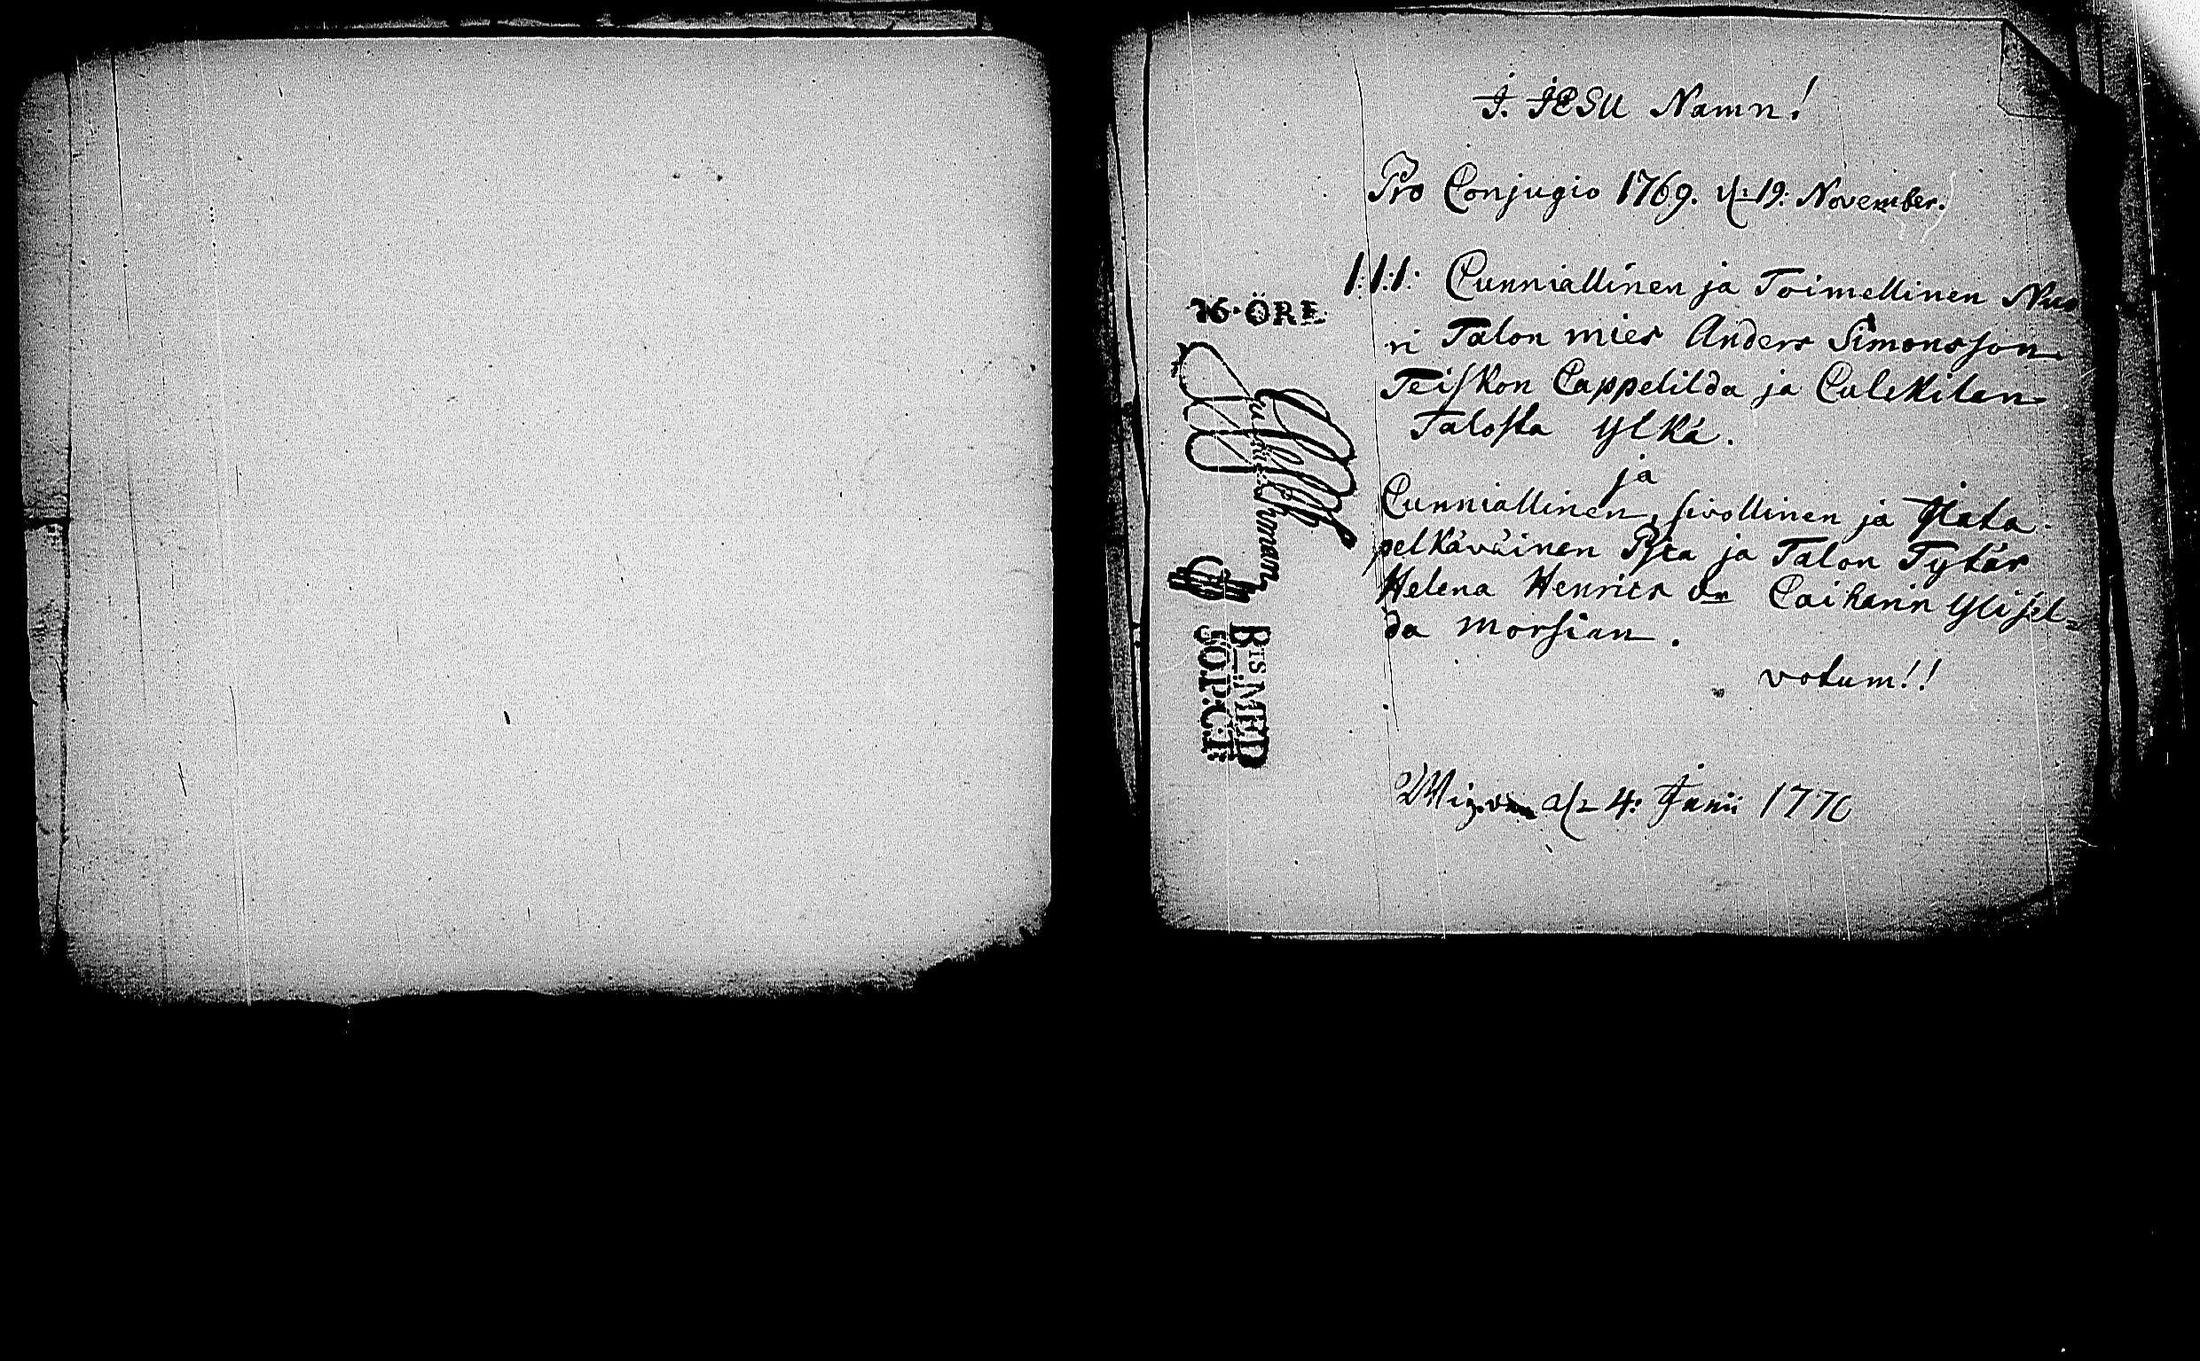 I. JESU Namn!
Pro Conjugio 1769. d. 19. November.
1:1:1: Cunniallinen ja Toimellinen Nuo
ri Talon mies Anders Simonsson
Teiskon Cappelilda ja Culckilan
Talosta Ylkä.
ja
Cunniallinen, sivollinen ja
pelkäväinen ja Talon Tytär
Helena Henrics Caiharin Ylisel=
da morsian.
votum!!
d. 4: 1770
16·ÖRE
BTS MED
5Ö.P.C:T